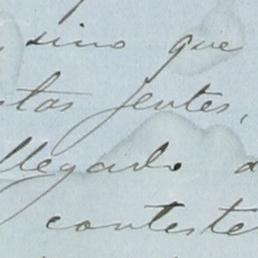 sino que
tas gentes,
llegado a
conteste